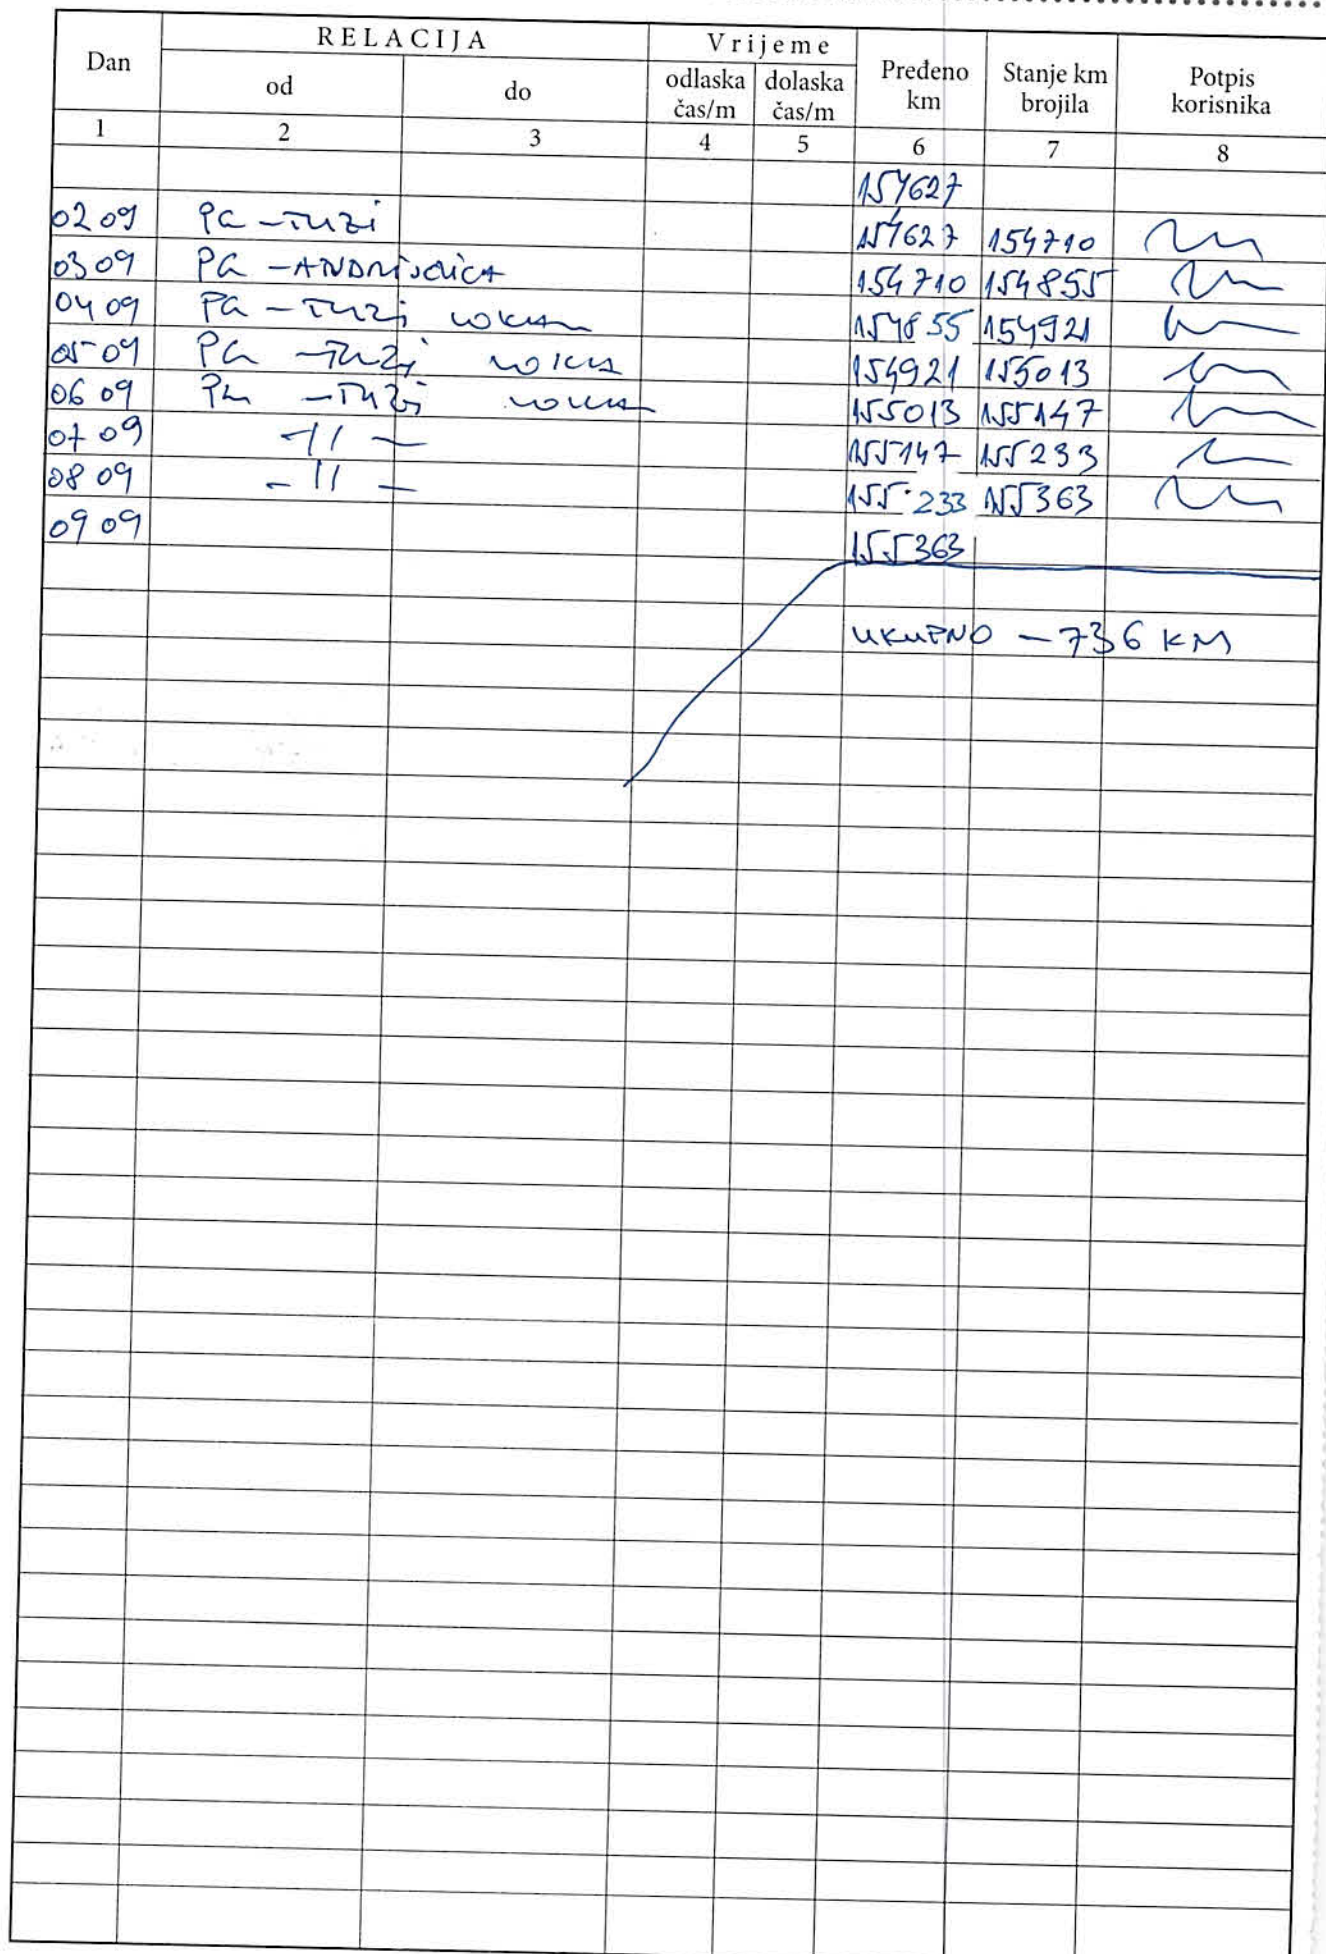 RELACIJA Vrijeme
Dan od do odlaska čas/m dolaska čas/m Pređeno km Stanje km brojila Potpis korisnika
1 2 3 4 5 6 7 8
154627
02 09 PG - TUZI 154627 154710
03 09 PG - ANDRIJEVICA 154710 154855
04 09 PG - TUZI 154855 154921
05 09 PG - TUZI 154921 155013
06 09 PG - TUZI 155013 155147
07 09 -11- 155147 155233
08 09 -11- 155.233 155363
09 09 155363
UKUPNO - 736 KM